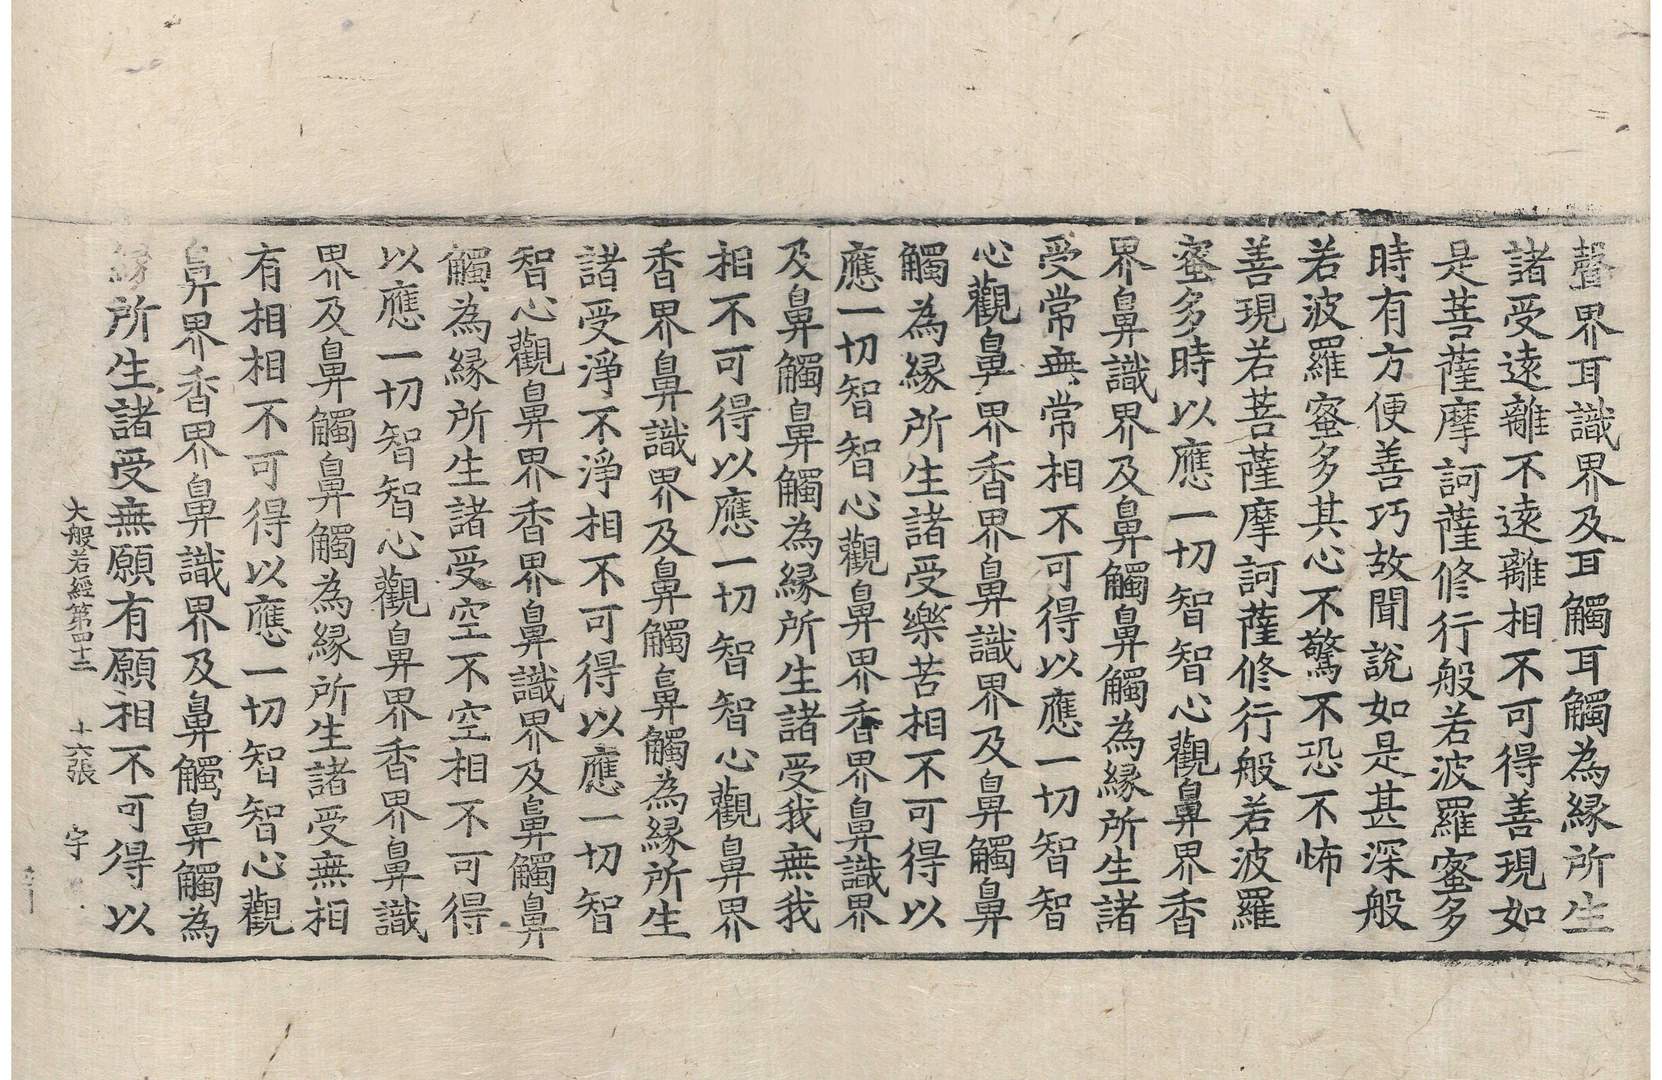 聲界耳識界及耳觸耳觸為緣所生
諸受遠離不遠離相不可得善現如
是菩薩摩訶薩修行般若波羅蜜多
時有方便善巧故聞說如是甚深般
若波羅蜜多其心不驚不恐不怖
善現若菩薩摩訶薩修行般若波羅
蜜多時以應一切智智心觀鼻界香
界鼻識界及鼻觸鼻觸為緣所生諸
受常無常相不可得以應一切智智
心觀鼻界香界鼻識界及鼻觸鼻
觸為緣所生諸受樂苦相不可得以
應一切智智心觀鼻界香界鼻識界
及鼻觸鼻觸為緣所生諸受我無我
相不可得以應一切智智心觀鼻界
香界鼻識界及鼻觸鼻觸為緣所生
諸受淨不淨相不可得以應一切智
智心觀鼻界香界鼻識界及鼻觸鼻
觸為緣所生諸受空不空相不可得
以應一切智智心觀鼻界香界鼻識
界及鼻觸鼻觸為緣所生諸受無相
有相相不可得以應一切智智心觀
鼻界香界鼻識界及鼻觸鼻觸為
緣所生諸受無願有願相不可得以
大般若經第四十二 十六張 宇